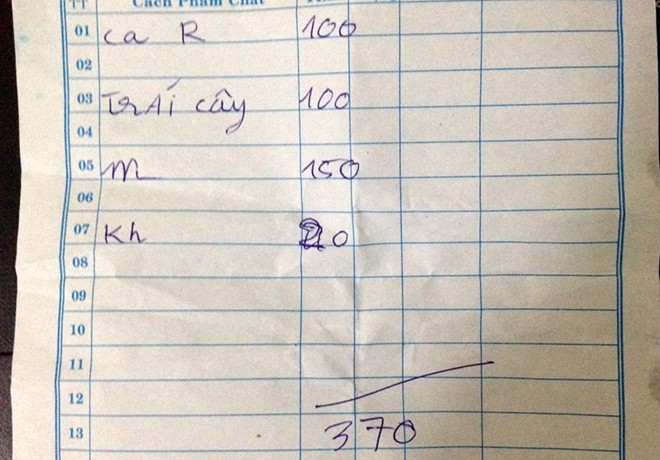 TT Cách Phẩm Chất
01 ca R 100
02
03 TRÁI cây 100
04
05 M 150
06
07 Kh 20
08
09
10
11
12
13 370